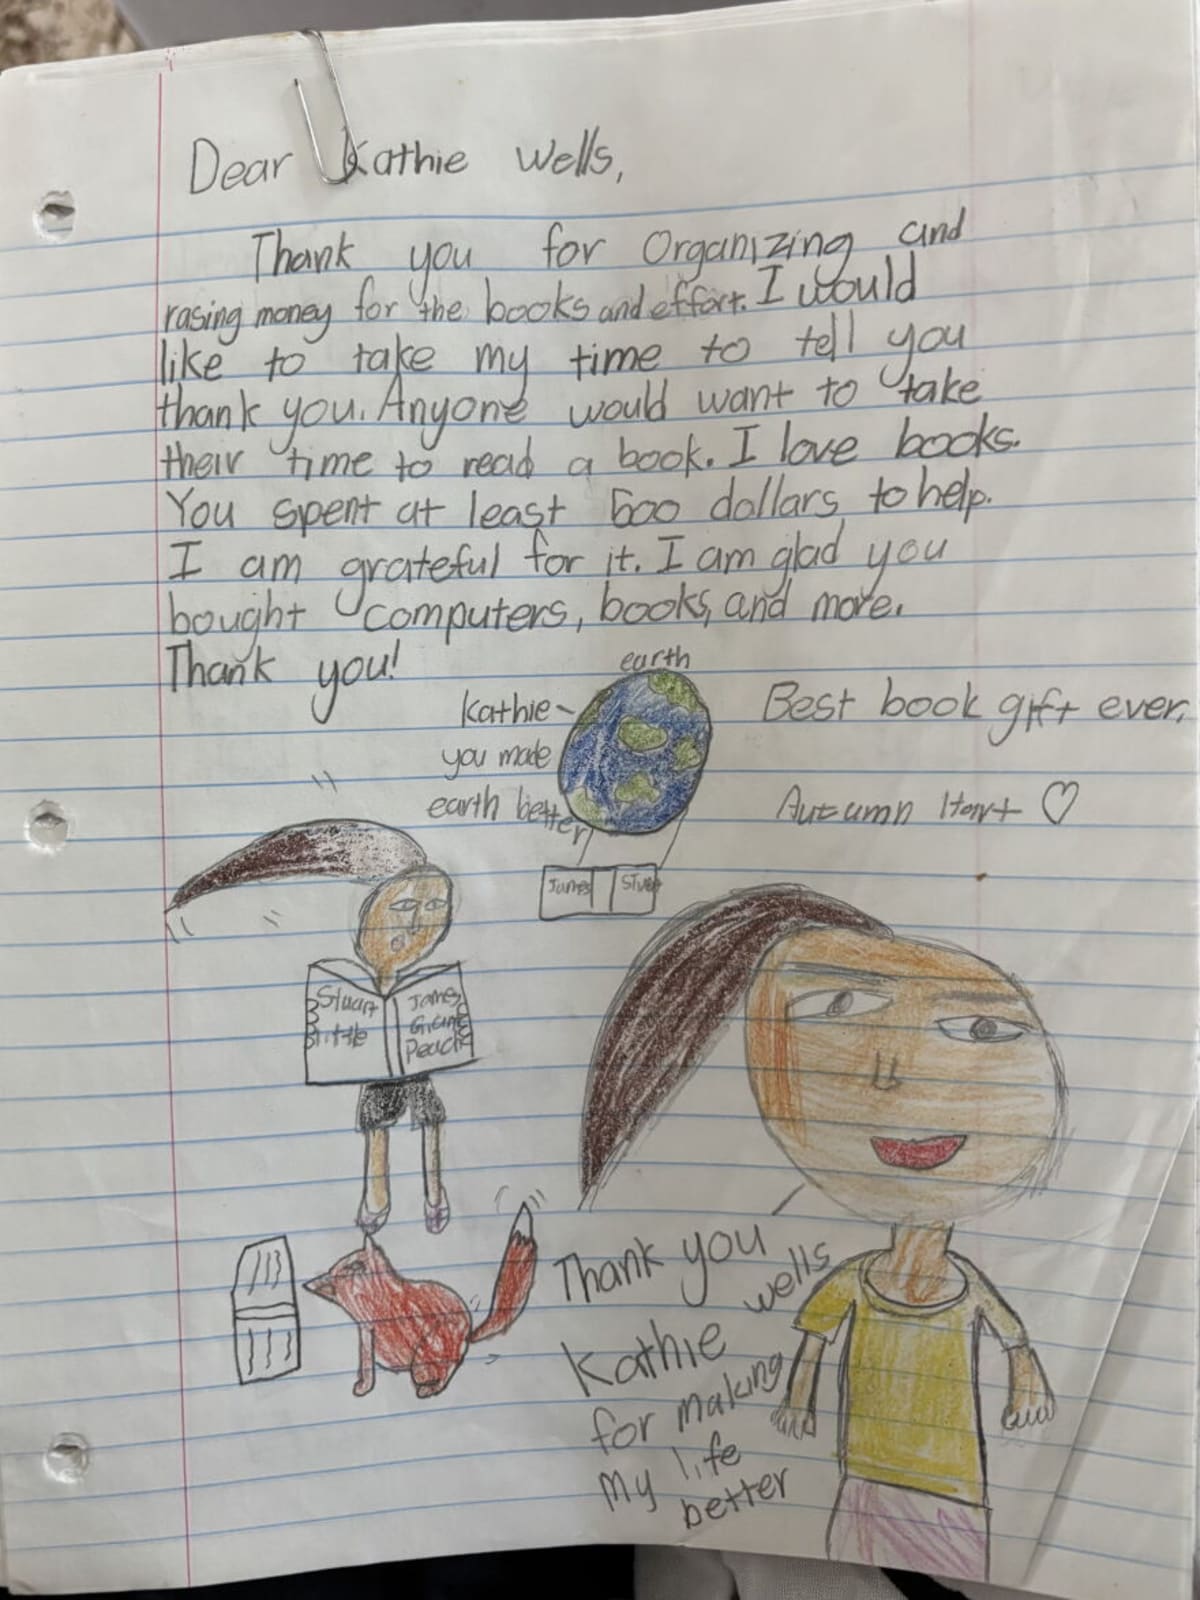 Dear Kathie Wells,
Thank you for Organizing and
rasing money for the books and effort. I would
like to take my time to tell you
thank you. Anyone would want to take
their time to read a book. I love books.
You spent at least 600 dollars to help.
I am grateful for it. I am glad you
bought computers, books, and more.
Thank you!
earth
Kathie
you made
earth better
Best book gift ever.
Autumn
James
Stuart
little
James
Giant
Peach
Thank you
Kathie wells
for making
my life
better